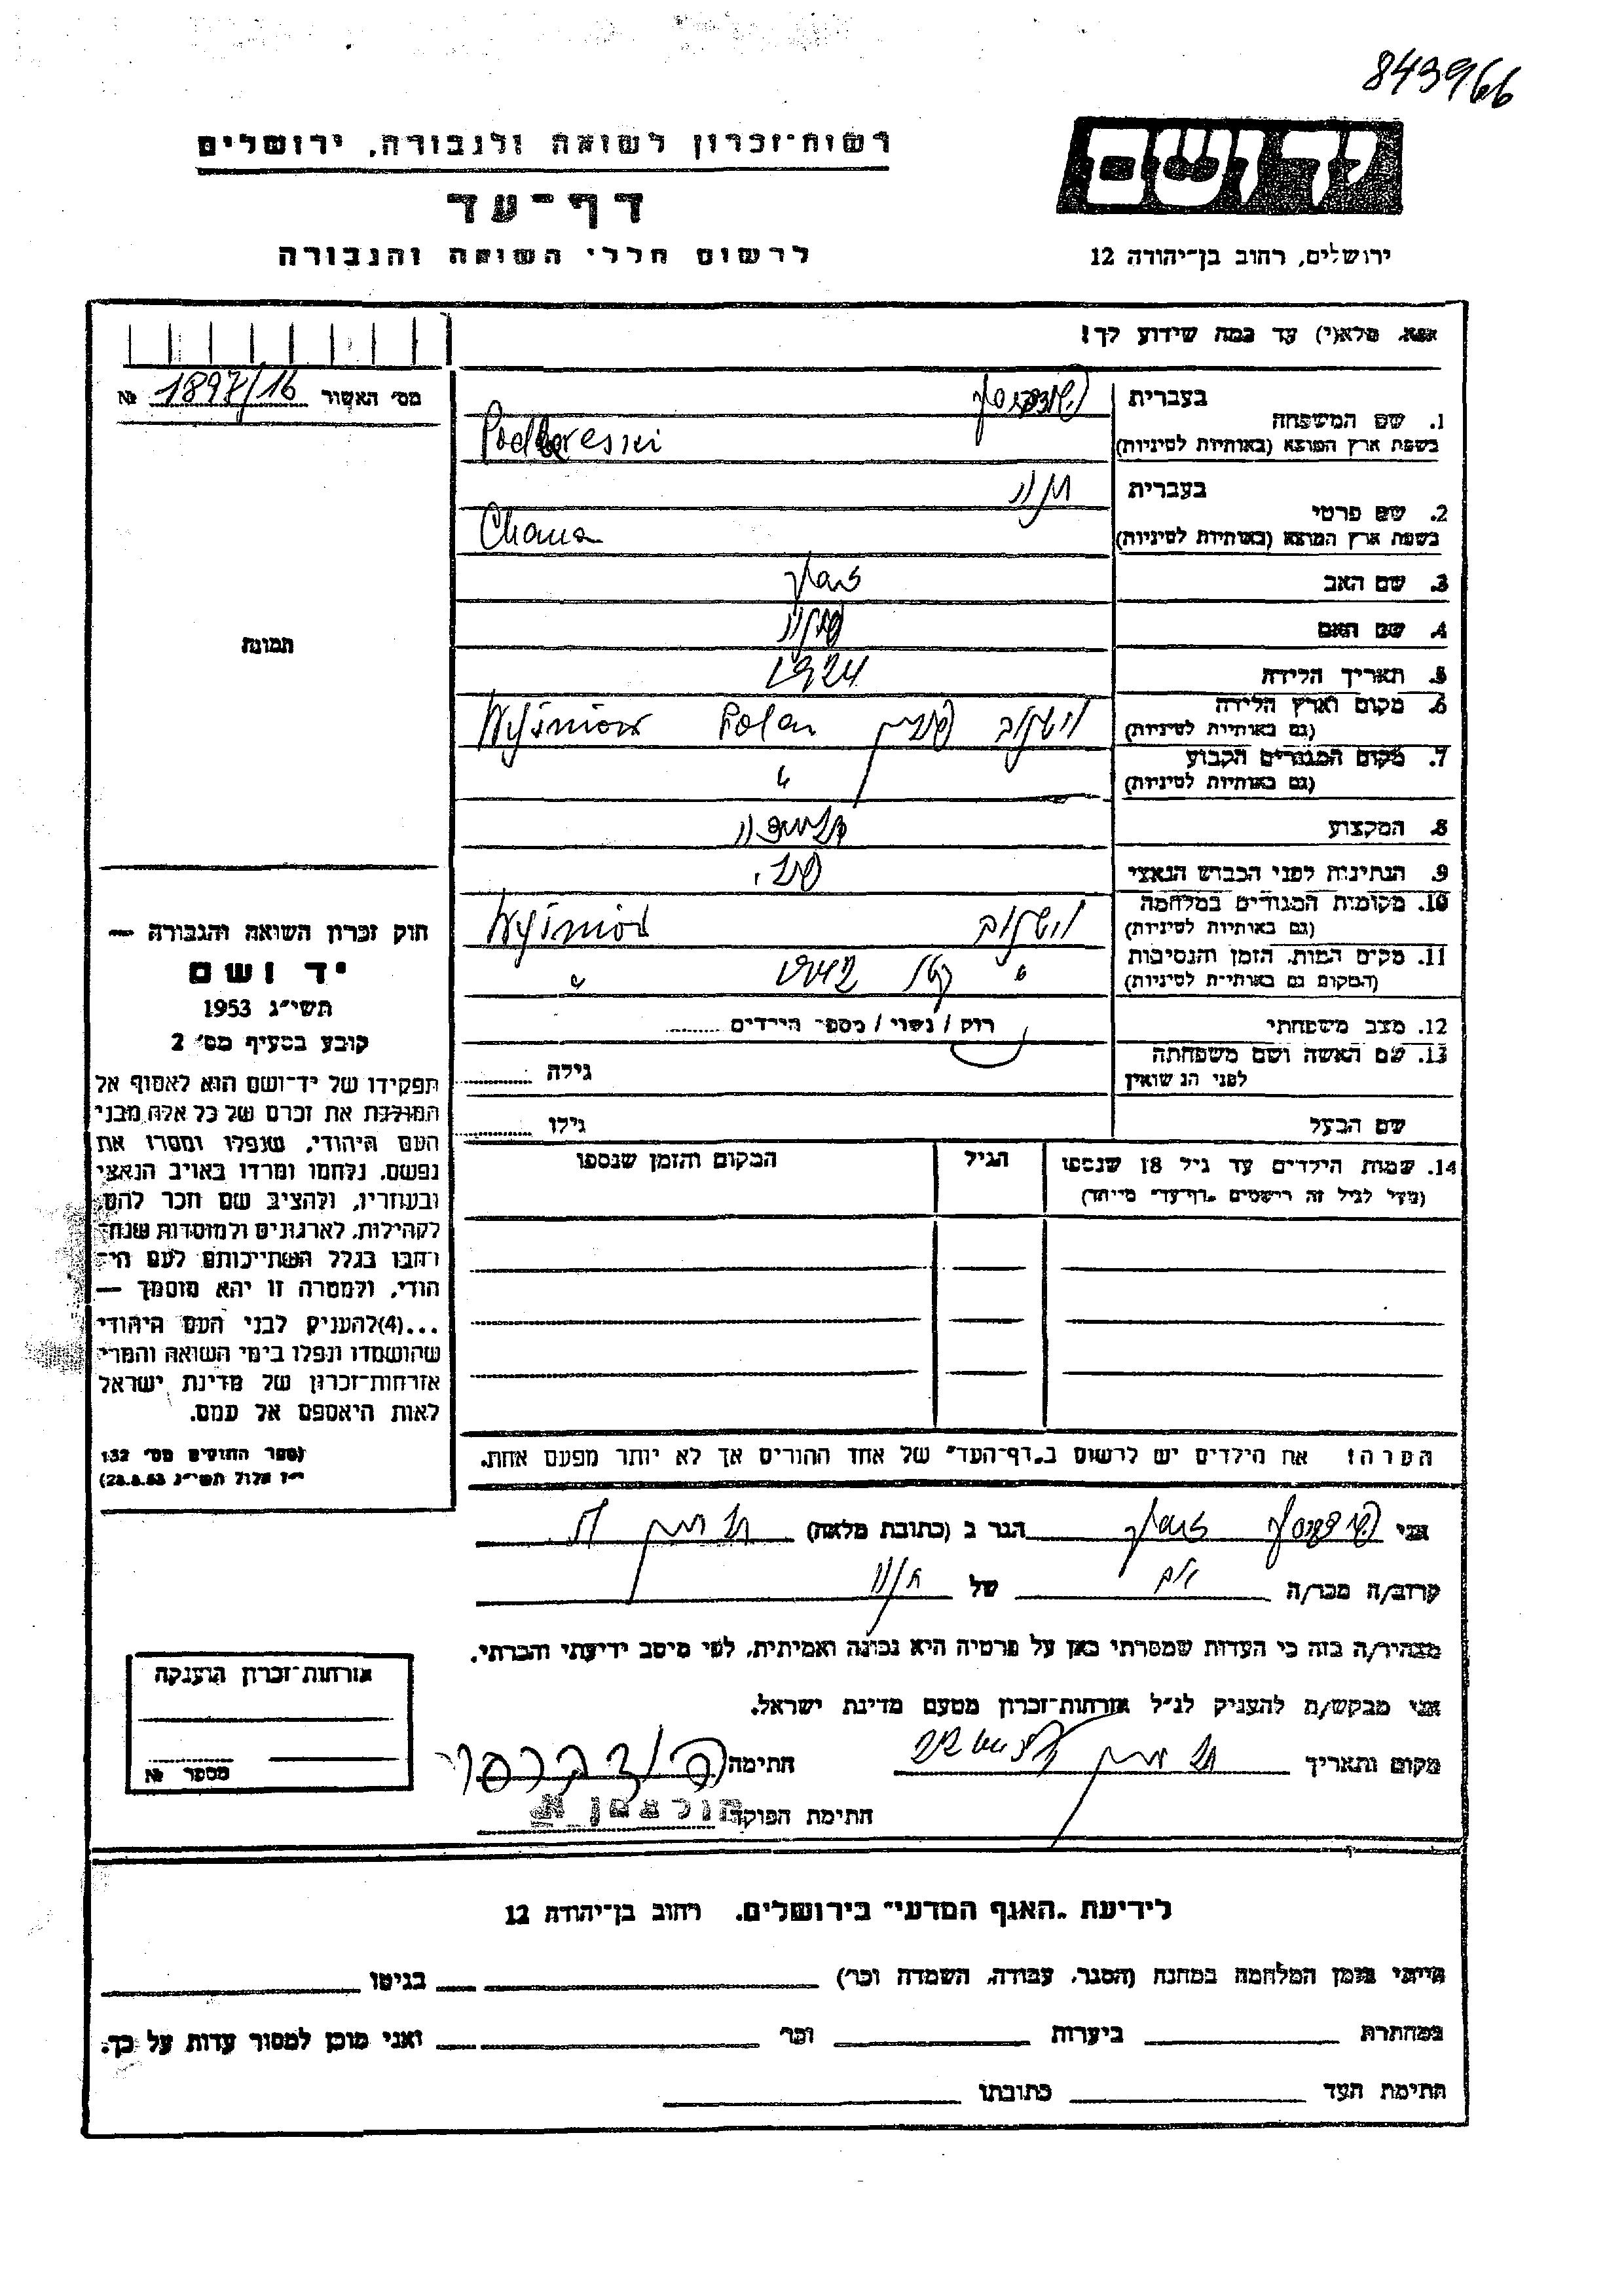 843966
יד ושם
רשות־זכרון לשואה ולגבורה, ירושלים
דף־עד
לרשום חללי השואה והגבורה
ירושלים, רחוב בן־יהודה 12
אנא, מלא(י) עד כמה שידוע לך!
מס׳ האשור 1897/16 №
1. שם המשפחה
בעברית
בשפת ארץ המוצא (באותיות לטיניות)
2. שם פרטי
בעברית חנה
בשפת ארץ המוצא (באותיות לטיניות) Chana
3. שם האב
4. שם האם
5. תאריך הלידה 1924
6. מקום וארץ הלידה
(גם באותיות לטיניות) פולין Polen
7. מקום המגורים הקבוע
(גם באותיות לטיניות) "
8. המקצוע
9. הנתינות לפני הכבוש הנאצי פול.
10. מקומות המגורים במלחמה
(גם באותיות לטיניות)
11. מקום המות, הזמן והנסיבות
(המקום גם באותיות לטיניות) "
12. מצב משפחתי רוק / נשוי / מספר הילדים
13. שם האשה ושם משפחתה
לפני הנישואין גילה
שם הבעל גילו
14. שמות הילדים עד גיל 18 שנספו
(מעל לגיל זה רישמים „דף־עד״ מייחד)
הגיל
המקום והזמן שנספו
הערה: את הילדים יש לרשום ב„דף־העד״ של אחד ההורים אך לא יותר מפעם אחת.
תמונה
חוק זכרון השואה והגבורה —
יד ושם
תשי״ג 1953
קובע בסעיף מס׳ 2
תפקידו של יד־ושם הוא לאסוף אל
המולדת את זכרם של כל אלה מבני
העם היהודי, שנפלו ומסרו את
נפשם, נלחמו ומרדו באויב הנאצי
ובעוזריו, ולהציב שם וזכר להם,
לקהילות, לארגונים ולמוסדות שנח־
רבו בגלל השתייכותם לעם הי־
הודי, ולמטרה זו יהא מוסמך —
...(4)להעניק לבני העם היהודי
שהושמדו ונפלו בימי השואה והמרי
אזרחות־זכרון של מדינת ישראל
לאות היאספם אל עמם.
(ספר החוקים מס׳ 132
י״ז אלול תשי״ג 28.8.53)
אני הגר ב (כתובת מלאה)
קרוב/ה מכר/ה של חנה
מצהיר/ה בזה כי העדות שמסרתי כאן על פרטיה היא נכונה ואמיתית, לפי מיטב ידיעתי והכרתי.
אני מבקש/ת להעניק לנ״ל אזרחות־זכרון מטעם מדינת ישראל.
מקום ותאריך חתימה
חתימת הפוקד
אזרחות־זכרון הוענקה
מספר №
לידיעת „האגף המדעי״ בירושלים, רחוב בן־יהודה 12
הייתי בזמן המלחמה במחנה (הסגר, עבודה, השמדה וכו׳) בגיטו
במחתרת ביערות וכו׳ ואני מוכן למסור עדות על כך.
חתימת העד כתובתו